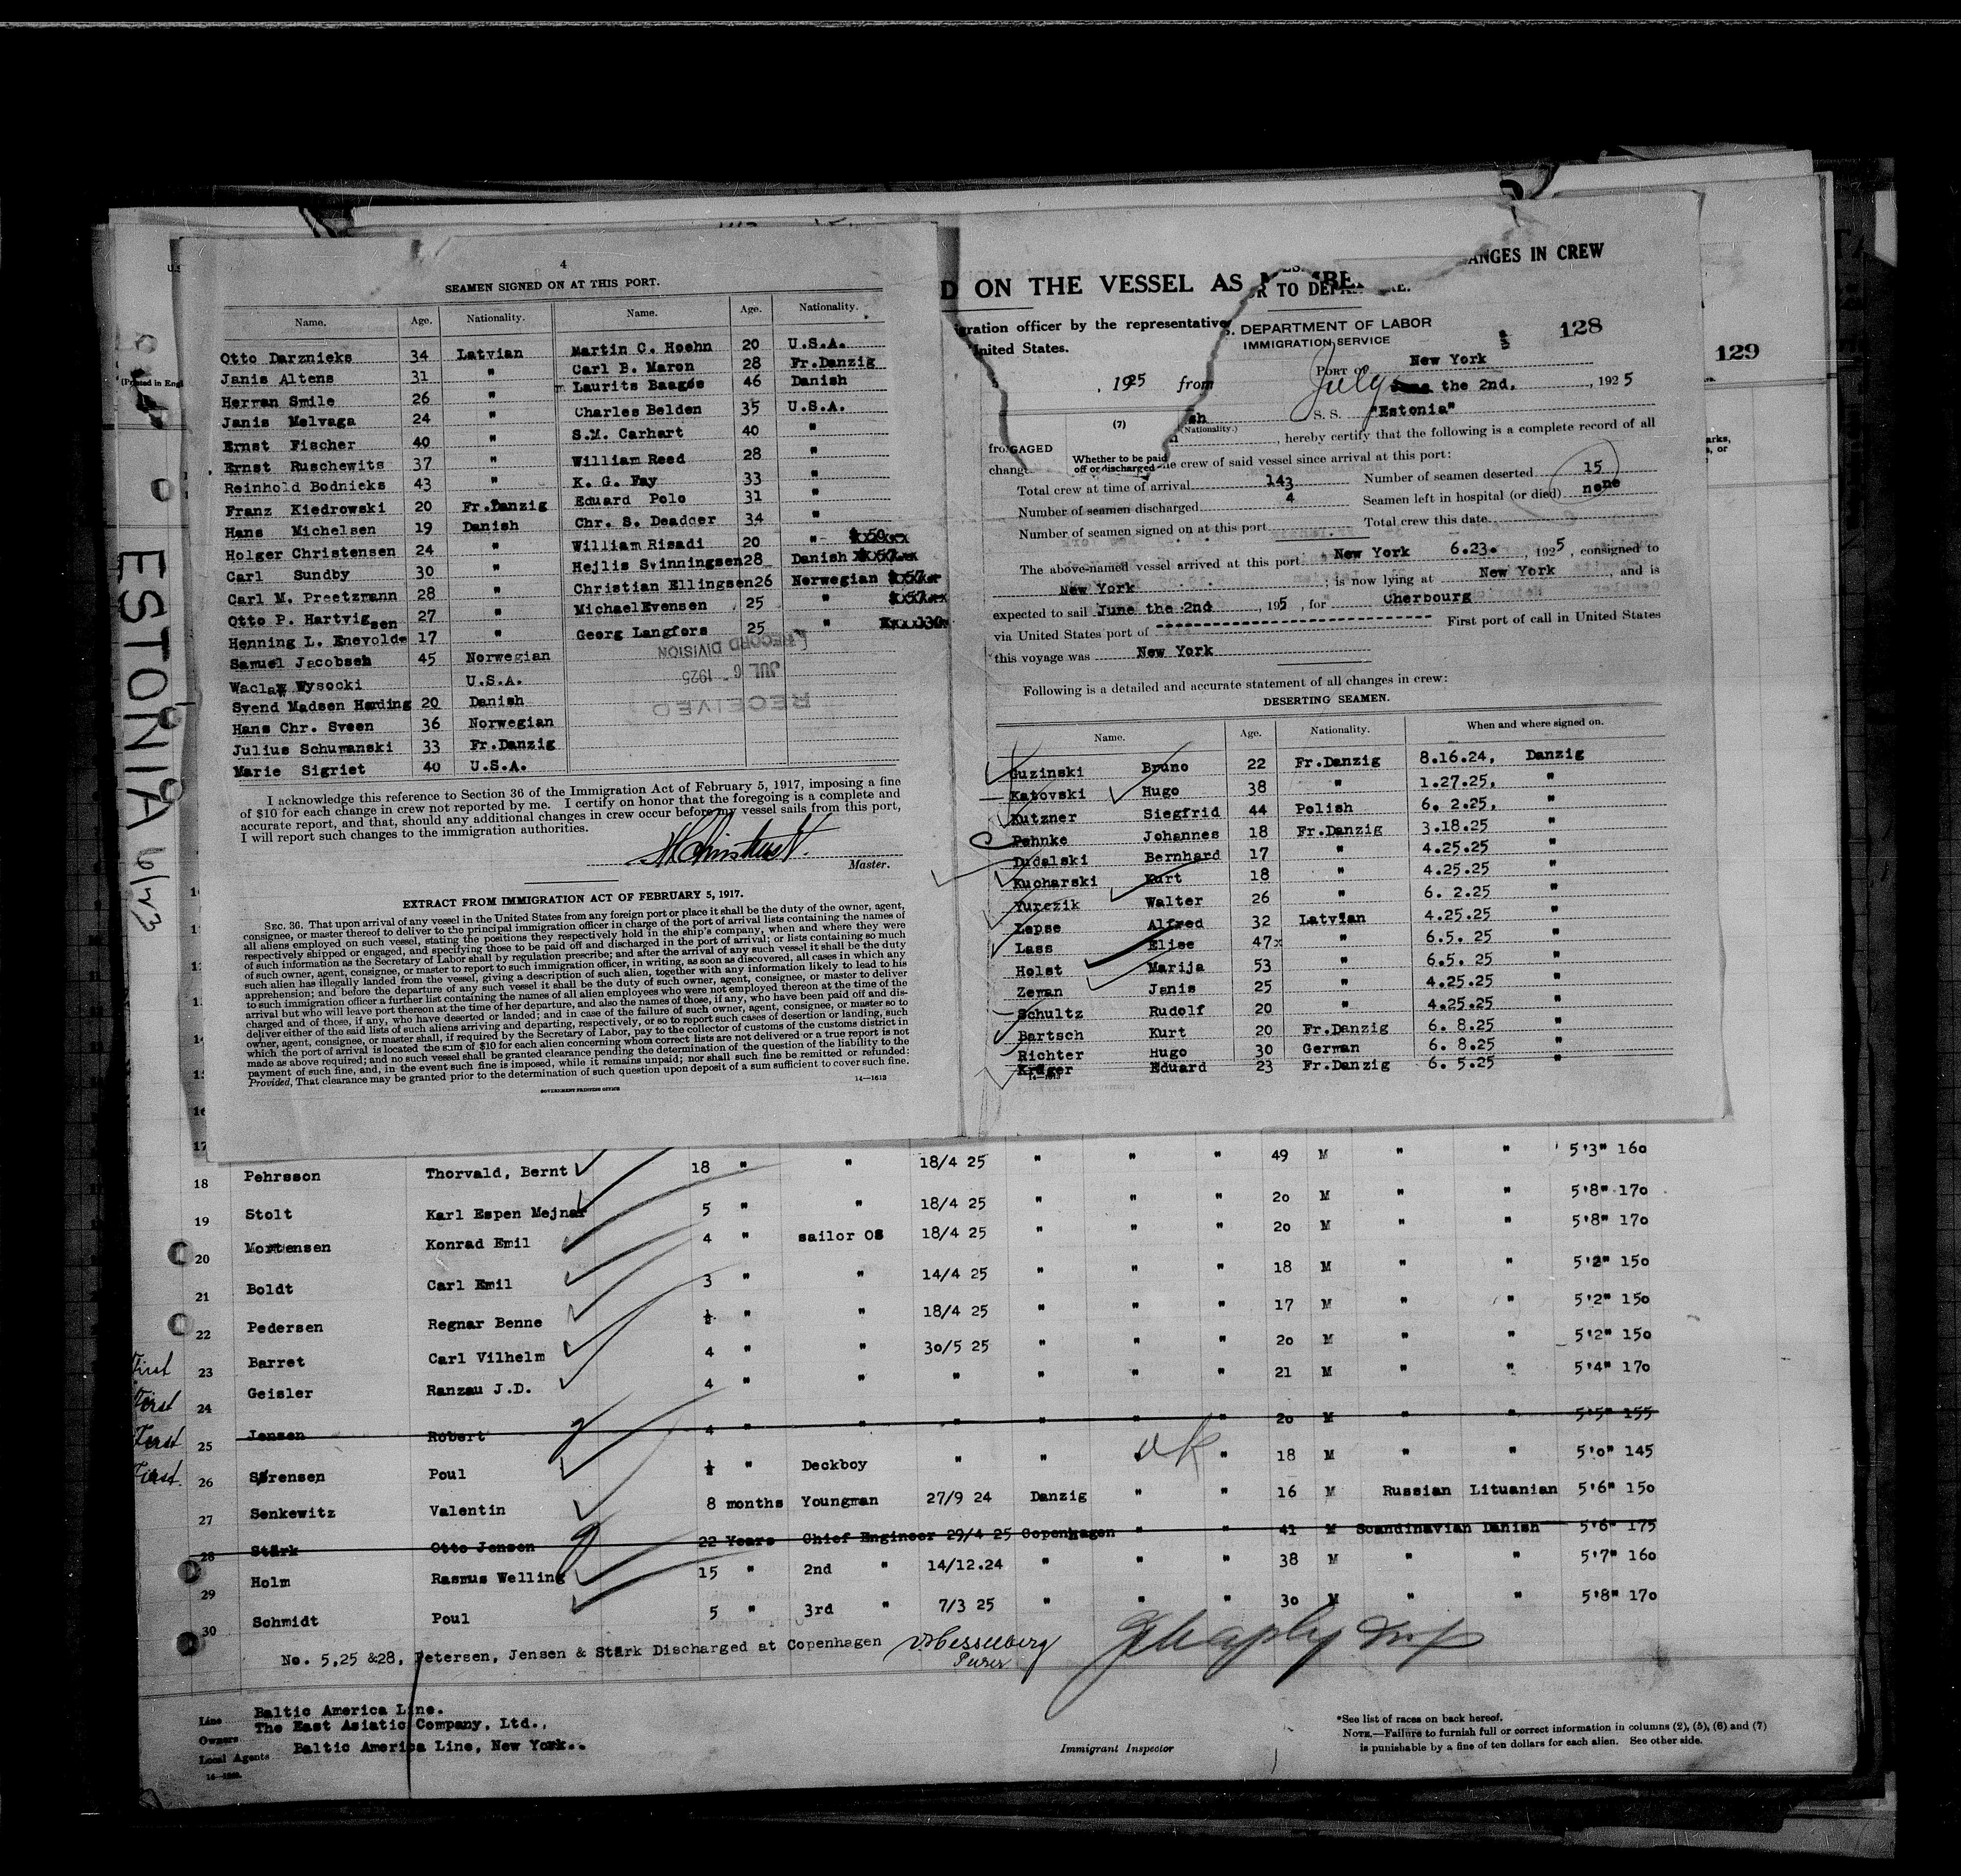 ESTONIA 6/23
4
SEAMEN SIGNED ON AT THIS PORT.
Name. Age. Nationality. Name. Age. Nationality.
Otto Darznieks 34 Latvian Martin C. Hoehn 20 U.S.A.
Janis Altens 31 " Carl B. Maron 28 Fr.Danzig
Herman Smile 26 " Laurits Baagøe 46 Danish
Janis Melvaga 24 " Charles Belden 35 U.S.A.
Ernst Fischer 40 " S.M. Carhart 40 "
Ernst Ruschewits 37 " William Reed 28 "
Reinhold Bodnieks 43 " K. G. Fay 33 "
Franz Kiedrowski 20 Fr.Danzig Eduard Polo 31 "
Hans Michelsen 19 Danish Chr. S. Deadcer 34 "
Holger Christensen 24 " William Risadi 20 "
Carl Sundby 30 " Hejlis Svinningsen 28 Danish
Carl M. Preetzmann 28 " Christian Ellingsen 26 Norwegian
Otto P. Hartvigsen 27 " Michael Evensen 25 "
Henning L. Enevolds 17 " Georg Langfors 25 "
Samuel Jacobsen 45 Norwegian
Waclaw Wysocki U.S.A.
Svend Madsen Harding 20 Danish
Hans Chr. Sveen 36 Norwegian
Julius Schumanski 33 Fr.Danzig
Marie Sigriet 40 U.S.A.
RECEIVED
JUL 6 - 1925
RECORD DIVISION
I acknowledge this reference to Section 36 of the Immigration Act of February 5, 1917, imposing a fine
of $10 for each change in crew not reported by me. I certify on honor that the foregoing is a complete and
accurate report, and that, should any additional changes in crew occur before my vessel sails from this port,
I will report such changes to the immigration authorities.
Master.
EXTRACT FROM IMMIGRATION ACT OF FEBRUARY 5, 1917.
SEC. 36. That upon arrival of any vessel in the United States from any foreign port or place it shall be the duty of the owner, agent,
consignee, or master thereof to deliver to the principal immigration officer in charge of the port of arrival lists containing the names of
all aliens employed on such vessel, stating the positions they respectively hold in the ship's company, when and where they were
respectively shipped or engaged, and specifying those to be paid off and discharged in the port of arrival; or lists containing so much
of such information as the Secretary of Labor shall by regulation prescribe; and after the arrival of any such vessel it shall be the duty
of such owner, agent, consignee, or master to report to such immigration officer, in writing, as soon as discovered, all cases in which any
such alien has illegally landed from the vessel, giving a description of such alien, together with any information likely to lead to his
apprehension; and before the departure of any such vessel it shall be the duty of such owner, agent, consignee, or master to deliver
to such immigration officer a further list containing the names of all alien employees who were not employed thereon at the time of the
arrival but who will leave port thereon at the time of her departure, and also the names of those, if any, who have been paid off and dis-
charged and of those, if any, who have deserted or landed; and in case of the failure of such owner, agent, consignee, or master so to
deliver either of the said lists of such aliens arriving and departing, respectively, or so to report such cases of desertion or landing, such
owner, agent, consignee, or master shall, if required by the Secretary of Labor, pay to the collector of customs of the customs district in
which the port of arrival is located the sum of $10 for each alien concerning whom correct lists are not delivered or a true report is not
made as above required; and no such vessel shall be granted clearance pending the determination of the question of the liability to the
payment of such fine, and, in the event such fine is imposed, while it remains unpaid; nor shall such fine be remitted or refunded:
Provided, That clearance may be granted prior to the determination of such question upon deposit of a sum sufficient to cover such fine.
GOVERNMENT PRINTING OFFICE 14—1613
ANGES IN CREW
D ON THE VESSEL AS
R TO DEPA
igration officer by the representative
United States.
. DEPARTMENT OF LABOR
IMMIGRATION SERVICE
128
129
PORT OF New York
, 1925 from
July the 2nd, , 1925
S. S. "Estonia"
(7)
(Nationality.)
, hereby certify that the following is a complete record of all
GAGED
Whether to be paid
off or discharged
change
he crew of said vessel since arrival at this port:
Total crew at time of arrival 143 Number of seamen deserted 15
Number of seamen discharged 4 Seamen left in hospital (or died) none
Number of seamen signed on at this port Total crew this date
The above-named vessel arrived at this port New York 6.23. , 1925, consigned to
New York ; is now lying at New York , and is
expected to sail June the 2nd , 195 , for Cherbourg
via United States port of First port of call in United States
this voyage was New York
Following is a detailed and accurate statement of all changes in crew:
DESERTING SEAMEN.
Name. Age. Nationality. When and where signed on.
Guzinski Bruno 22 Fr.Danzig 8.16.24, Danzig
Katovski Hugo 38 " 1.27.25, "
Kutzner Siegfrid 44 Polish 6. 2.25, "
Pehnke Johannes 18 Fr.Danzig 3.18.25 "
Dudalski Bernhard 17 " 4.25.25 "
Kucharski Kurt 18 " 4.25.25 "
Yurczik Walter 26 " 6. 2.25 "
Zepse Alfred 32 Latvian 4.25.25 "
Lass Elise 47x " 6.5. 25 "
Holst Marija 53 " 6.5. 25 "
Zeman Janis 25 " 4.25.25 "
Schultz Rudolf 20 " 4.25.25 "
Bartsch Kurt 20 Fr.Danzig 6. 8.25 "
Richter Hugo 30 German 6. 8.25 "
Krüger Eduard 23 Fr.Danzig 6. 5.25 "
17
18 Pehrsson Thorvald, Bernt 18 " " 18/4 25 " " " 49 M " " 5'3" 160
19 Stolt Karl Espen Mejnar 5 " " 18/4 25 " " " 20 M " " 5'8" 170
20 Mortensen Konrad Emil 4 " sailor OS 18/4 25 " " " 20 M " " 5'8" 170
21 Boldt Carl Emil 3 " " 14/4 25 " " " 18 M " " 5'2" 150
22 Pedersen Regnar Benne ½ " " 18/4 25 " " " 17 M " " 5'2" 150
First 23 Barret Carl Vilhelm 4 " " 30/5 25 " " " 20 M " " 5'2" 150
First 24 Geisler Ranzau J.D. 4 " " " " " " 21 M " " 5'4" 170
First 25 Jensen Robert 4 " " " " " " 20 M " " 5'5" 155
First 26 Sørensen Poul ½ " Deckboy " " ok " 18 M " " 5'0" 145
27 Senkewitz Valentin 8 months Youngman 27/9 24 Danzig " " 16 M Russian Lituanian 5'6" 150
28 Stärk Otto Jensen 22 Years Chief Engineer 29/4 25 Copenhagen " " 41 M Scandinavian Danish 5'6" 175
29 Holm Rasmus Welling 15 " 2nd " 14/12.24 " " " 38 M " " 5'7" 160
30 Schmidt Poul 5 " 3rd " 7/3 25 " " " 30 M " " 5'8" 170
No. 5,25 &28, Petersen, Jensen & Stärk Discharged at Copenhagen
Purser
Line Baltic America Line.
Owners The East Asiatic Company, Ltd.,
Local Agents Baltic America Line, New York..
Immigrant Inspector
*See list of races on back hereof.
NOTE.—Failure to furnish full or correct information in columns (2), (5), (6) and (7)
is punishable by a fine of ten dollars for each alien. See other side.